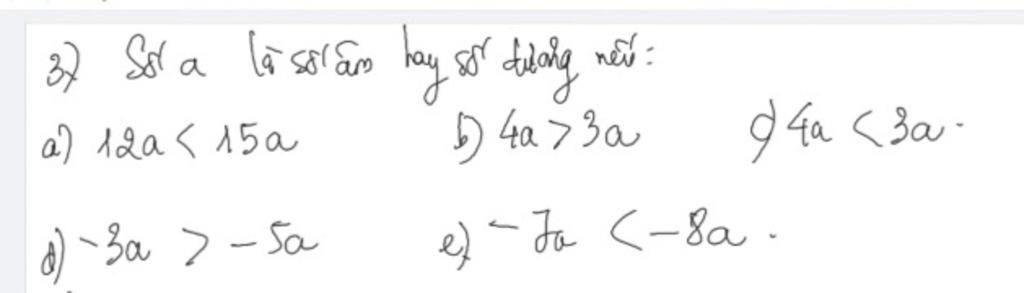 3) Số a là số âm hay số dương nếu:
a) 12a < 15a b) 4a > 3a c) 4a < 3a.
d) -3a > -5a e) -7a < -8a.